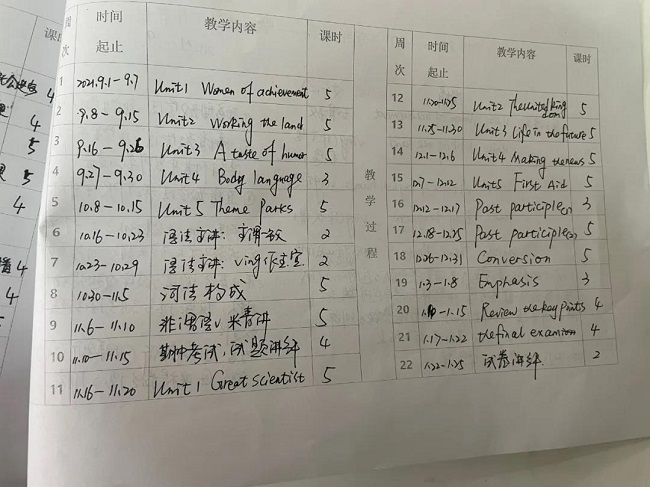 周次 时间起止 教学内容 课时
1 2021.9.1-9.7 Unit1 Women of achievement 5
2 9.8-9.15 Unit2 Working the land 5
3 9.16-9.26 Unit3 A taste of humor 5
4 9.27-9.30 Unit4 Body language 3
5 10.8-10.15 Unit5 Theme Parks 5
6 10.16-10.23 语法主讲: 主谓一致 2
7 10.23-10.29 语法主讲: Ving作主宾 2
8 10.30-11.5 构成 5
9 11.6-11.10 非谓语 讲 5
10 11.10-11.15 期中考试,试题讲评 4
11 11.16-11.20 Unit1 Great scientist 5
教学过程
周次 时间起止 教学内容 课时
12 11.20-11.25 Unit2 The united kingdom 5
13 11.25-11.30 Unit3 Life in the future 5
14 12.1-12.6 Unit4 Making the news 5
15 12.7-12.12 Unit5 First Aid 5
16 12.12-12.17 Past participle(1) 3
17 12.18-12.25 Past participle(2) 5
18 12.26-12.31 Conversion 5
19 1.3-1.8 Emphasis 3
20 1.10-1.15 Review the key points 4
21 1.17-1.22 the final exam 4
22 1.22-1.25 试卷讲评 2
课时
4
4
5
5
4
4
4